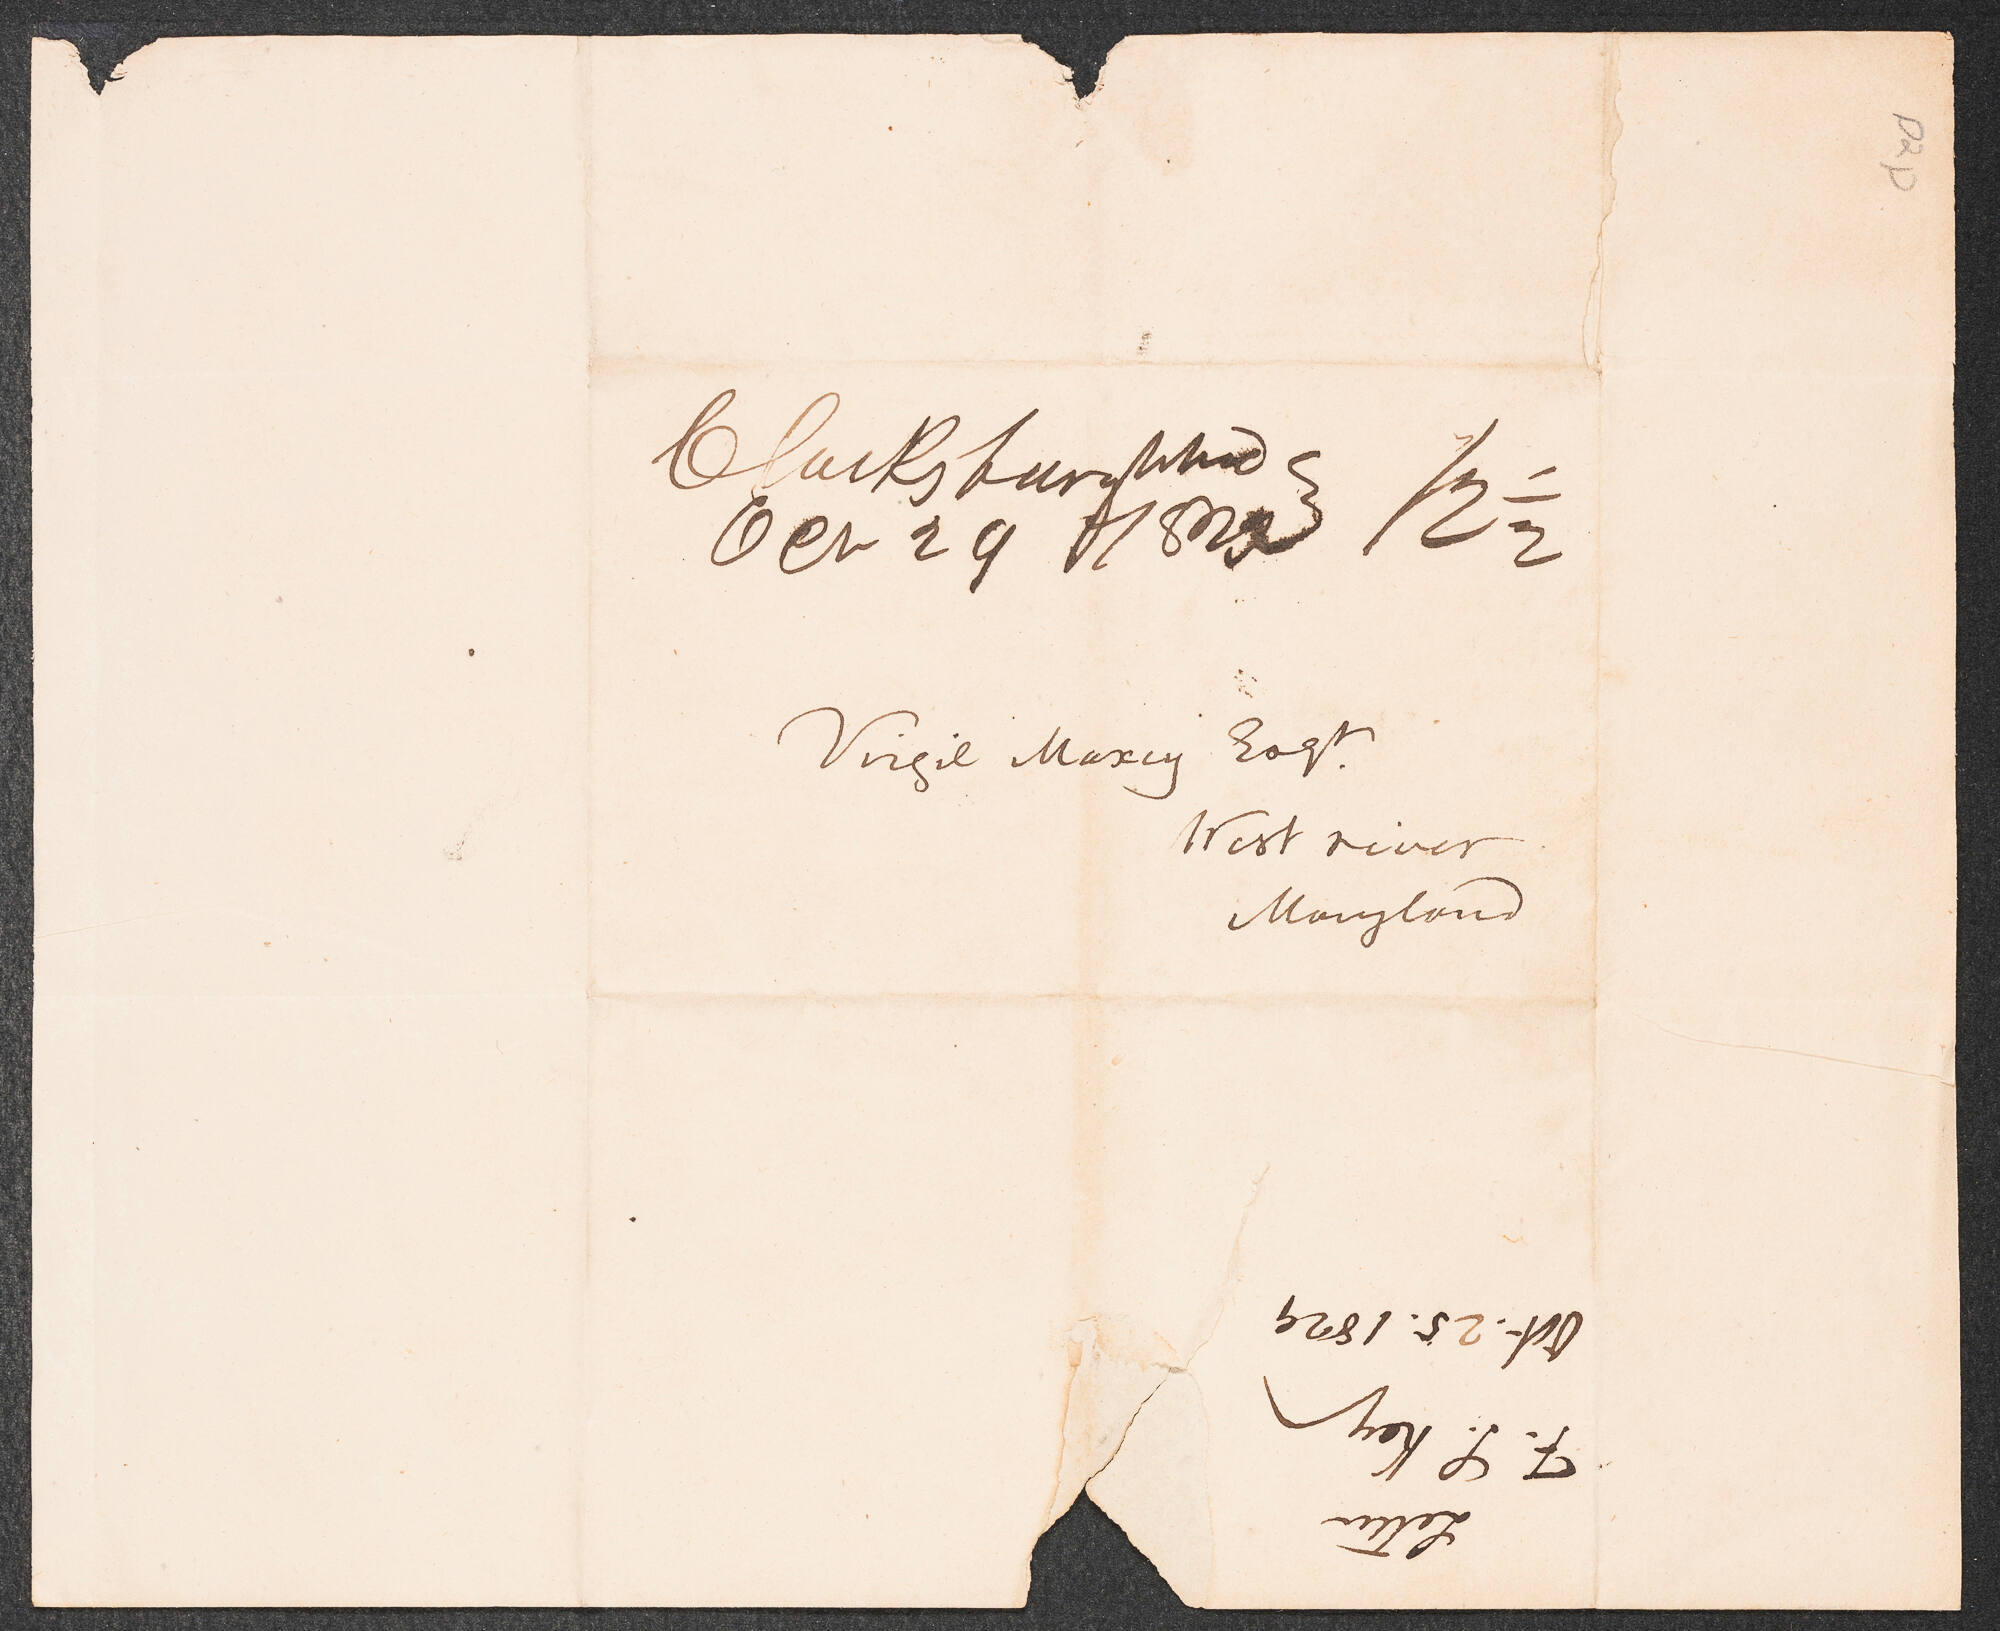 Clarksburg Md
Oct 29 1829
12 1/2
Virgil Maxcy Esqr.
West river
Maryland
Letter
F. S. Key
Oct. 25. 1829